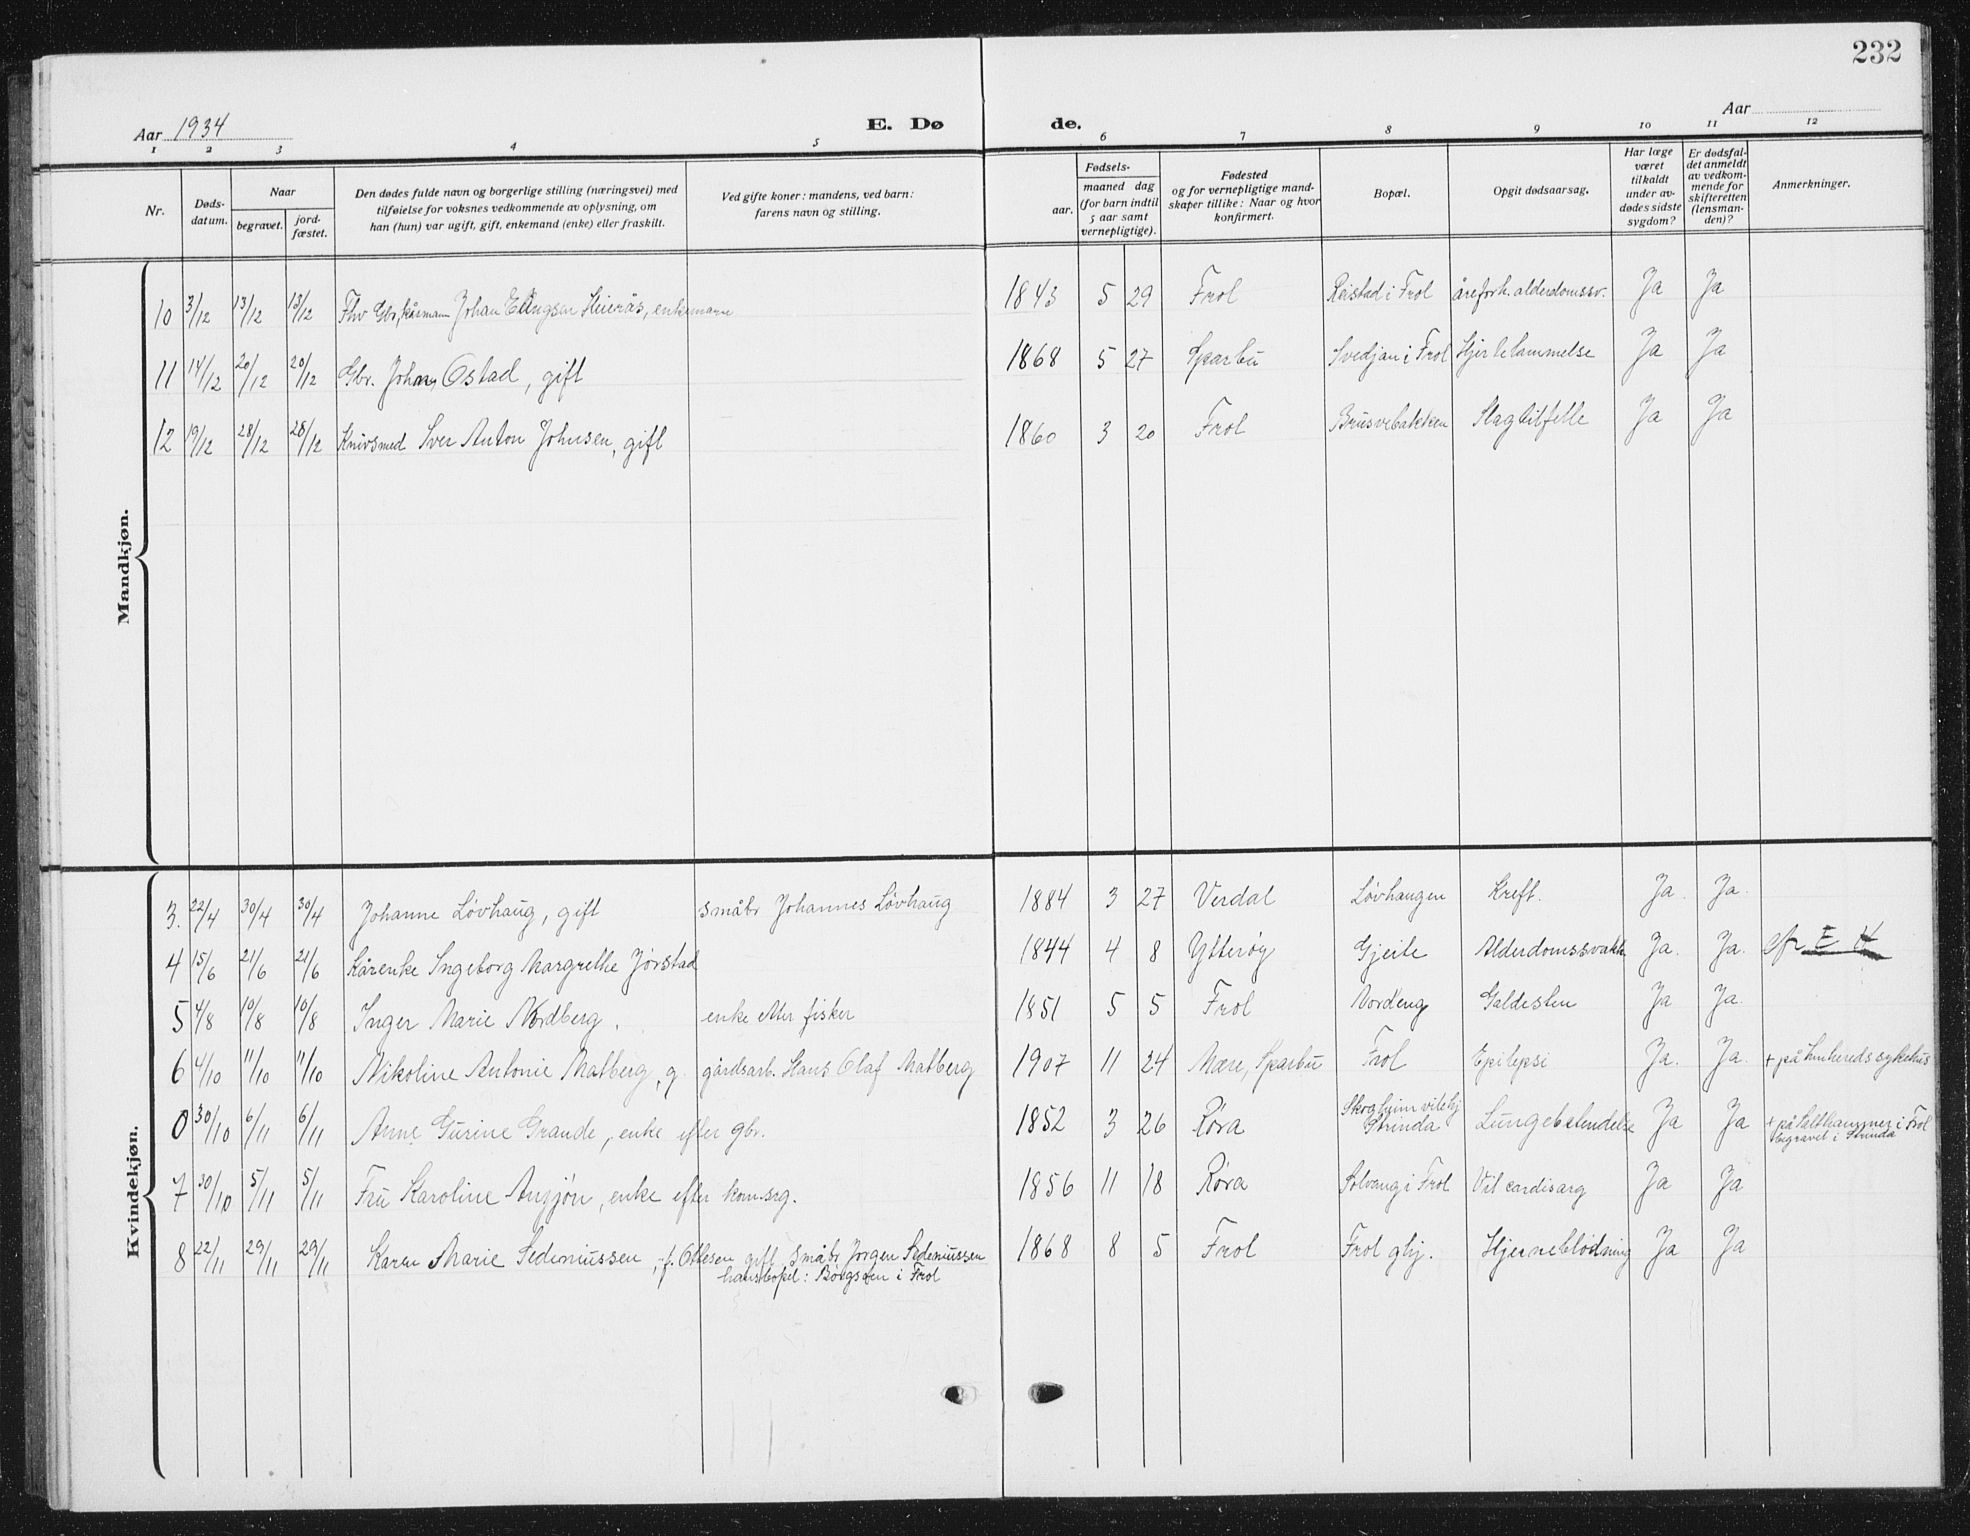 232
Aar 1934
E. Dø
de.
Aar
1 2 3 4 5 6 7 8 9 10 11 12
Nr.
Døds-
datum.
Naar
begravet.
jord-
fæstet.
Den dødes fulde navn og borgerlige stilling (næringsvei) med
tilføielse for voksnes vedkommende av oplysning, om
han (hun) var ugift, gift, enkemand (enke) eller fraskilt.
Ved gifte koner: mandens, ved barn:
farens navn og stilling.
Fødsels-
aar.
maaned dag
(for barn indtil
5 aar samt
vernepligtige).
Fødested
og for vernepligtige mand-
skaper tillike: Naar og hvor
konfirmert.
Bopæl.
Opgit dødsaarsag.
Har læge
været
tilkaldt
under av-
dødes sidste
sygdom?
Er dødsfal-
det anmeldt
av vedkom-
mende for
skifteretten
(lensman-
den)?
Anmerkninger.
Mandkjøn.
10 3/12 13/12 13/12 Fhv Gbr, kårmann Johan Ellingsen Heierås, enkemann 1843 5 29 Frol Reistad i Frol åreforh. alderdomssv. Ja Ja
11 14/12 20/12 20/12 Gbr. Johan Ostad, gift 1868 5 27 Sparbu Svedjan i Frol Hjertelammelse Ja Ja
12 19/12 28/12 28/12 Knivsmed Sver Anton Johnsen, gift 1860 3 20 Frol Brusvebakken Slagtilfelle Ja Ja
Kvindekjøn.
3. 22/4 30/4 30/4 Johanne Løvhaug, gift småbr Johannes Løvhaug 1884 3 27 Verdal Løvhaugen Kreft. Ja. Ja.
4 15/6 21/6 21/6 Kårenke Ingeborg Margrethe Jørstad 1844 4 8 Ytterøy Gjeite Alderdomssvakh. Ja. Ja.
5 4/8 10/8 10/8 Inger Marie Nordberg. enke etter fisker 1851 5 5 Frol Nordeng Galdesten Ja Ja.
6 4/10 11/10 11/10 Nikoline Antonie Matberg, g. gårdsarb. Hans Olaf Matberg 1907 11 24 Mære, Sparbu Frol Epilepsi Ja. Ja. + på Innhereds sykehus
0 30/10 6/11 6/11 Anne Gurine Grande, enke efter gbr. 1852 3 26 Røra Skogheim vilehj Strinda Lungebetendelse Ja Ja + på Salthammer i Frol
begravet i Strinda
7 30/10 5/11 5/11 Fru Karoline Aufjøn, enke efter kom.srg. 1856 11 18 Røra Solvang i Frol Vit cardis arg Ja Ja
8 22/11 29/11 29/11 Karen Marie Sedeniussen, f. Ottesen gift Småbr Jørgen Sedeniussen 1868 8 5 Frol Frol ghj. Hjerneblødning Ja Ja
hans bopel: Borgsåen i Frol